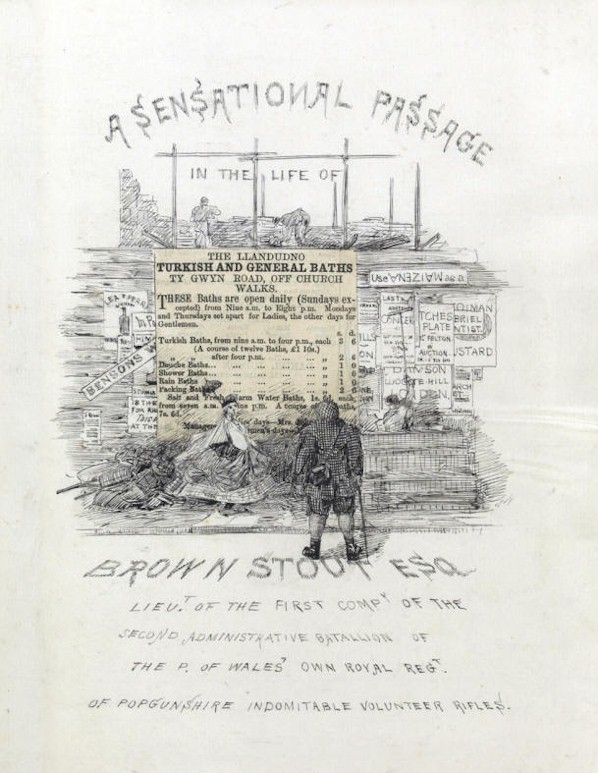 A SENSATIONAL PASSAGE
IN THE LIFE OF
THE LLANDUDNO
TURKISH AND GENERAL BATHS
TY GWYN ROAD, OFF CHURCH
WALKS.
THESE Baths are open daily (Sundays ex-
cepted) from Nine a.m. to Eight p.m. Mondays
and Thursdays set apart for Ladies, the other days for
Gentlemen.
s. d.
Turkish Baths, from nine a.m. to four p.m., each 3 6
(A course of twelve Baths, £1 10s.)
„ „ after four p.m. „ 2 6
Douche Baths... ... ... ... ... „ 1 0
Shower Baths... ... ... ... ... „ 1 0
Rain Baths ... ... ... ... „ 1 0
Packing Baths ... ... ... „ 2 6
Salt and Fresh Warm Water Baths, 1s. 6d. each,
from seven a.m. nine p.m. A course of Baths,
7s. 6d.
Manager
Use MAIZENA
LEA & PERR
BENSONS W
AT THE
TCHES
PLATE
FELTON
AUCTION
BRIEL
NTIST
USTARD
DANSON
HILL
BROWN STOUT ESQ
LIEUT OF THE FIRST COMPY OF THE
SECOND ADMINISTRATIVE BATALLION OF
THE P. OF WALES' OWN ROYAL REGT.
OF POPGUNSHIRE INDOMITABLE VOLUNTEER RIFLES.